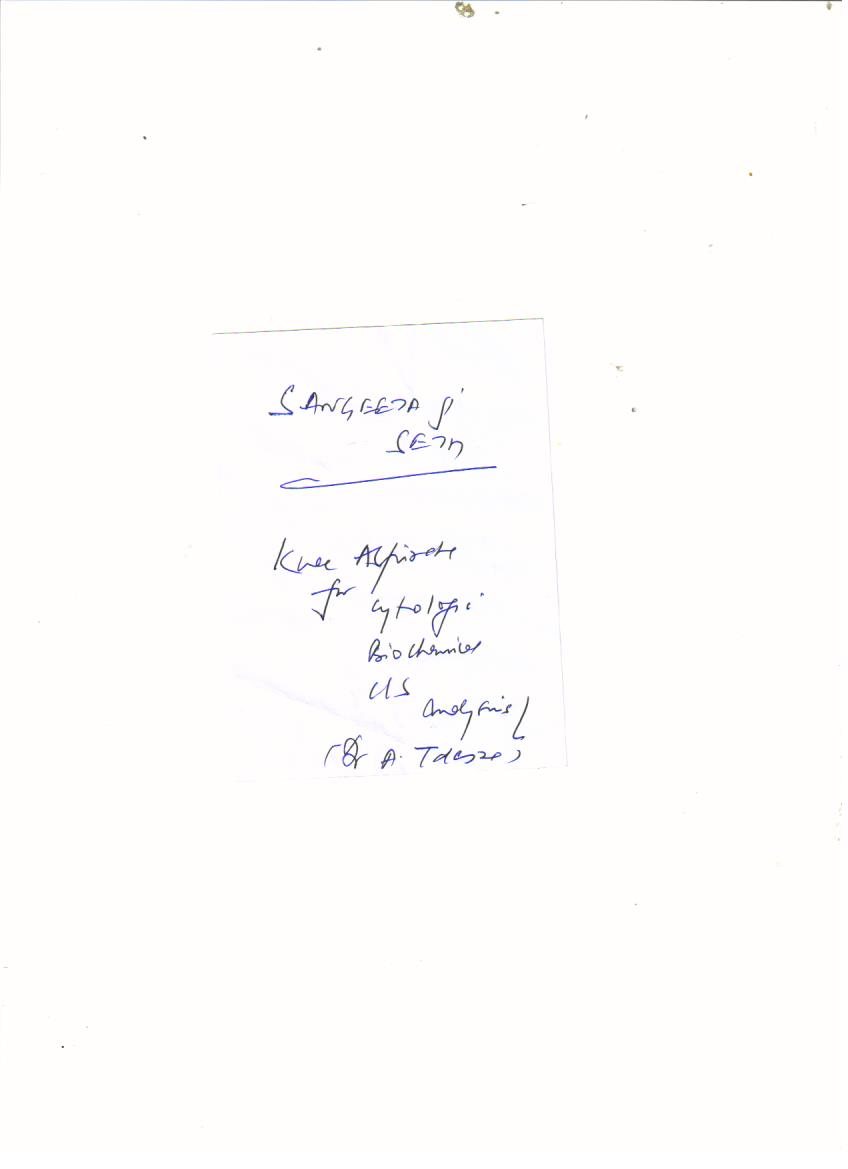 SANGEETA Ji
SETH
Knee Aspirate
for cytologic
Biochemical
C/S
Analysis
(Dr A.